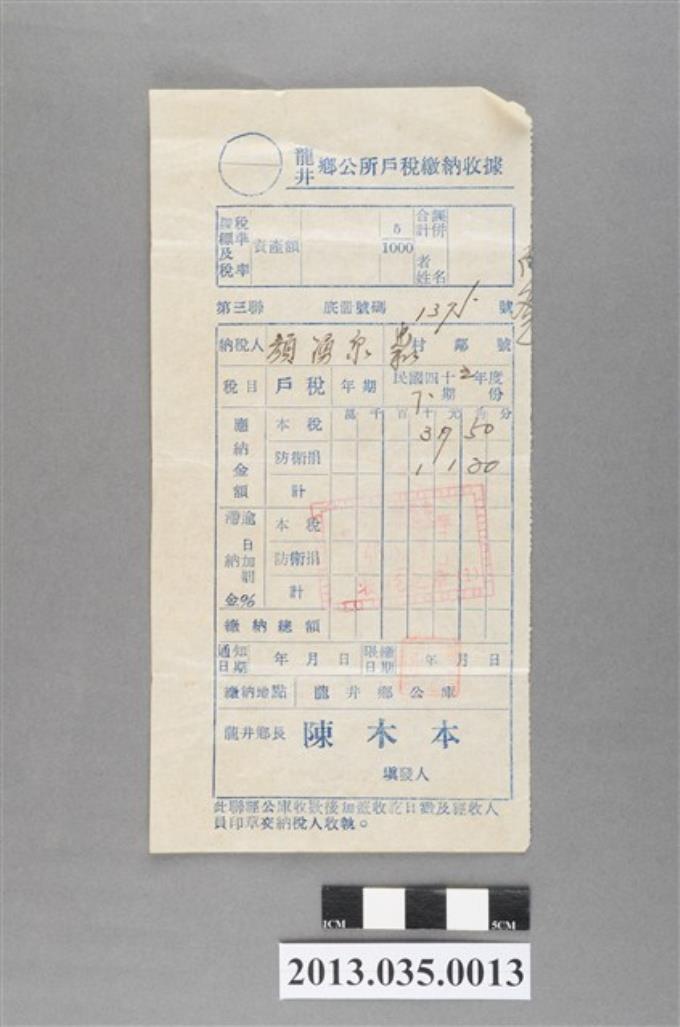 龍井鄉公所戶稅繳納收據
課稅標準及稅率 資產額 5/1000 合併計課者姓名
第三聯 底冊號碼 號
納稅人 顏湧泉 村 鄰 號
稅目 戶稅 年期 民國四十 年度 期份
萬 千 百 十 元 角 分
應納金額 本稅 37 50
防衛捐 11 20
計
滯納金 逾日加罰% 本稅
防衛捐
計
繳納總額
通知日期 年 月 日 限繳日期 年 月 日
繳納地點 龍井鄉公庫
龍井鄉長 陳木本
填發人
此聯經公庫收款後加蓋收訖日戳及經收人
員印章交納稅人收執。
1CM 5CM
2013.035.0013